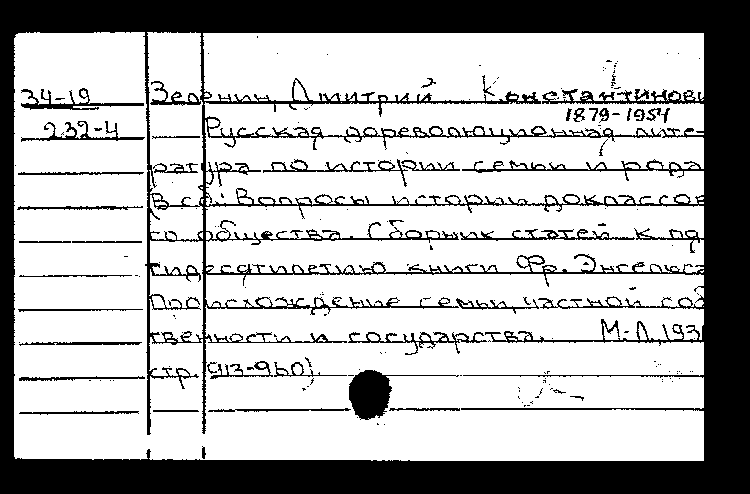 34-19 Зеленин, Дмитрий Константинови
1879-1954
232-4 Русская дореволюционная лите-
ратура по истории семьи и рода
(В сб.: Вопросы истории доклассов
го общества. Сборник статей к пя
тидесятилетию книги Фр. Энгельса
Происхождение семьи, частной соб
твенности и государства. М.-Л., 193
стр. 913-960).